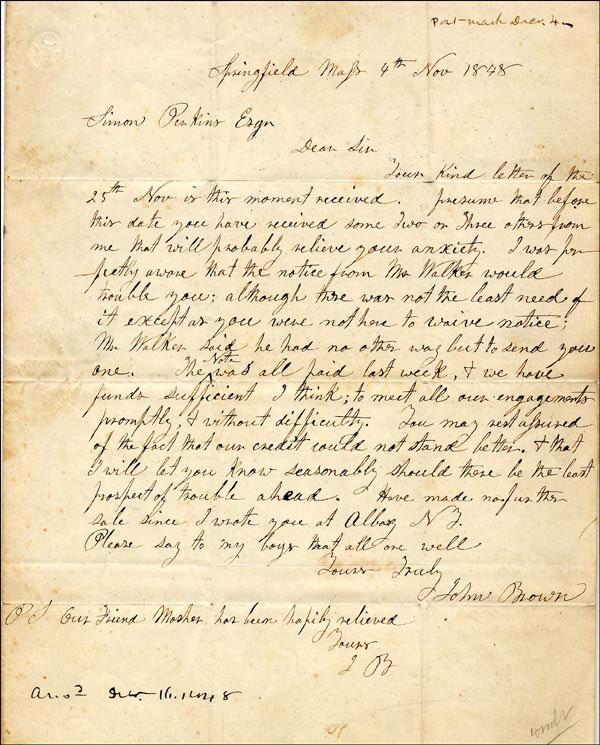 Post-mark Decr. 4
Springfield Mass 4th Nov 1848
Simon Perkins Esqr
Dear Sir
Your Kind letter of the
25th Nov is this moment received. presume that before
this date you have received some Two or Three others from
me that will probably relieve your anxiety. I was per-
-fectly aware that the notice from Mr Walker would
trouble you; although there was not the least need of
it except as you were not here to waive notice;
Mr Walker said he had no other way but to send you
one. The Note was all paid last week, & we have
funds sufficient I think; to meet all our engagements
promptly; & without difficulty. You may rest assured
of the fact that our credit could not stand better. & that
I will let you know seasonably should there be the least
prospect of trouble ahead. Have made no further
sale since I wrote you at Albany N Y.
Please say to my boys that all are well
Yours Truly
John Brown
P S Our Friend Mosher has been hapily relieved
Yours
J B
Decr. 16. 1848